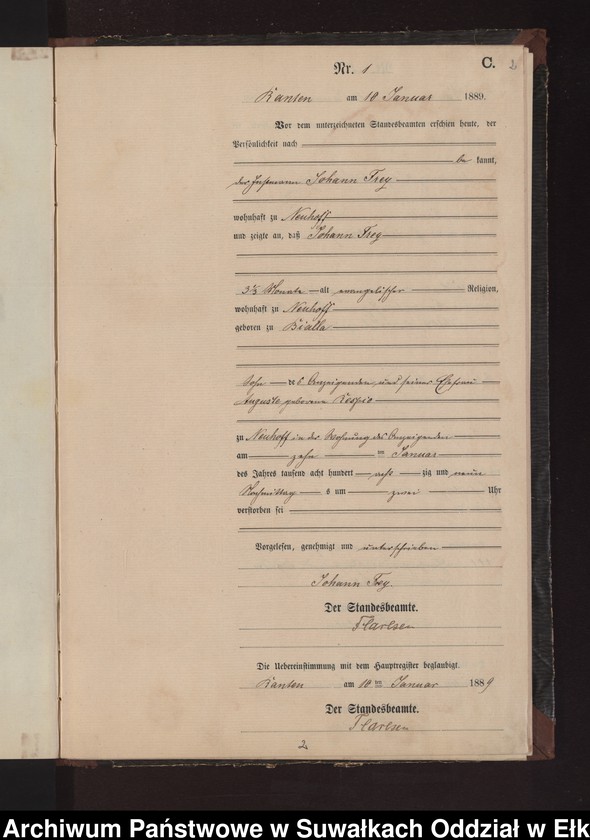 Nr. 1
C.
2
Kanten am 10 Januar 1889.
Vor dem unterzeichneten Standesbeamten erschien heute, der
Persönlichkeit nach
be kannt,
der Johann Frey
wohnhaft zu Neuhoff
und zeigte an, daß Johann Frey
3½ Monate alt evangelischer Religion,
wohnhaft zu Neuhoff
geboren zu Bialla
Sohn des Anzeigenden und seiner Ehefrau
Auguste geborene
zu Neuhoff in der Wohnung des Anzeigenden
am zehnten Januar
des Jahres tausend acht hundert acht zig und neun
Nachmittag s um zwei Uhr
verstorben sei
Vorgelesen, genehmigt und unterschrieben
Johann Frey.
Der Standesbeamte.
Die Uebereinstimmung mit dem Hauptregister beglaubigt.
Kanten am 10ten Januar 1889
Der Standesbeamte.
2
Archiwum Państwowe w Suwałkach Oddział w Ełk